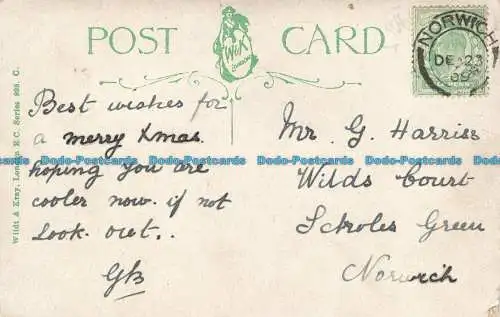 POST CARD
W&K
LONDON
NORWICH
DE 23
09
Wildt & Kray, London E.C. Series 998. C.
Best wishes for
a merry Xmas.
hoping you are
cooler now. if not
Look out..
GB
Mr. G. Harriss
Wilds Court
Scholes Green
Norwich
Dodo-Postcards Dodo-Postcards Dodo-Postcards Dodo-Postcards Dodo-Postcards